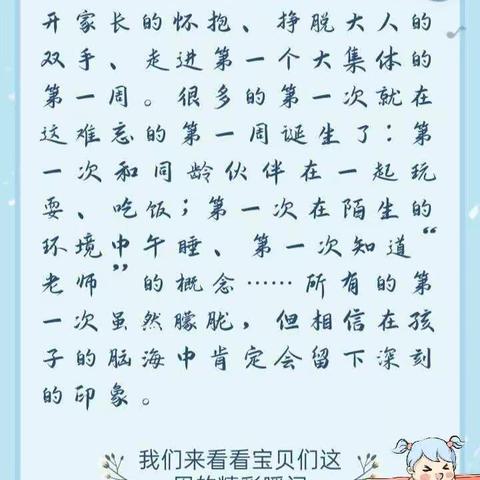 开家长的怀抱、挣脱大人的
双手、走进第一个大集体的
第一周。很多的第一次就在
这难忘的第一周诞生了：第
一次和同龄伙伴在一起玩
耍、吃饭；第一次在陌生的
环境中午睡、第一次知道“
老师”的概念……所有的第
一次虽然朦胧，但相信在孩
子的脑海中肯定会留下深刻
的印象。
我们来看看宝贝们这
周的精彩瞬间